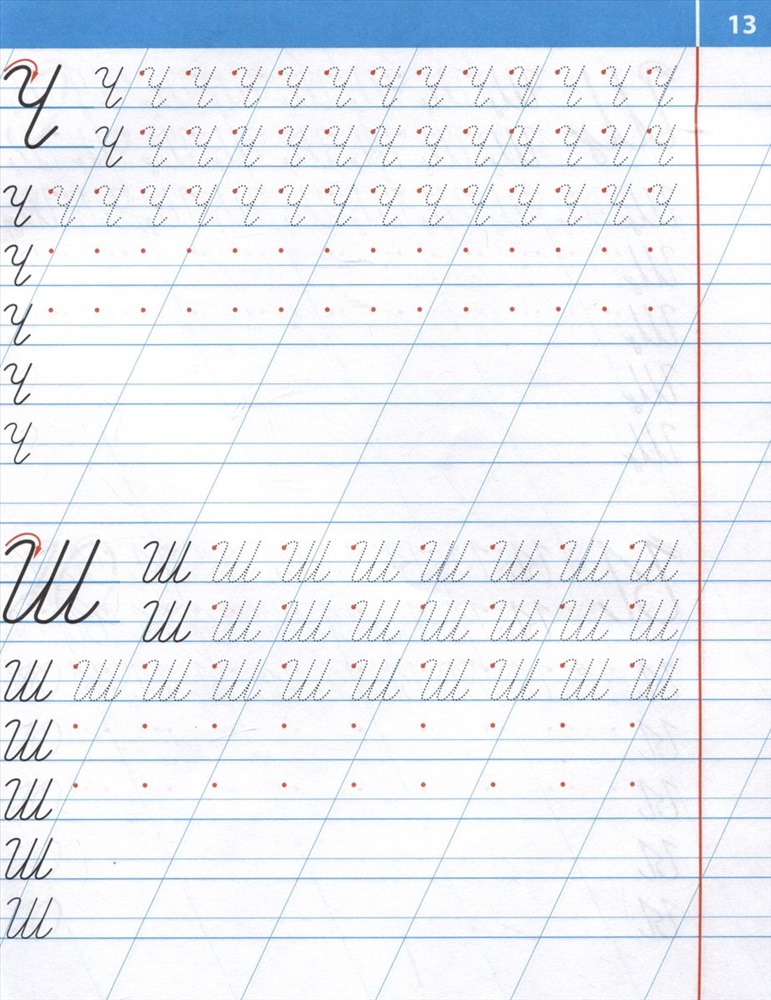 13
Ч Ч Ч Ч Ч Ч Ч Ч Ч Ч Ч Ч Ч Ч
Ч Ч Ч Ч Ч Ч Ч Ч Ч Ч Ч Ч Ч
Ч Ч Ч Ч Ч Ч Ч Ч Ч Ч Ч Ч Ч Ч Ч
Ч
Ч
Ч
Ч
Ш Ш Ш Ш Ш Ш Ш Ш Ш
Ш Ш Ш Ш Ш Ш Ш Ш
Ш Ш Ш Ш Ш Ш Ш Ш Ш Ш
Ш
Ш
Ш
Ш